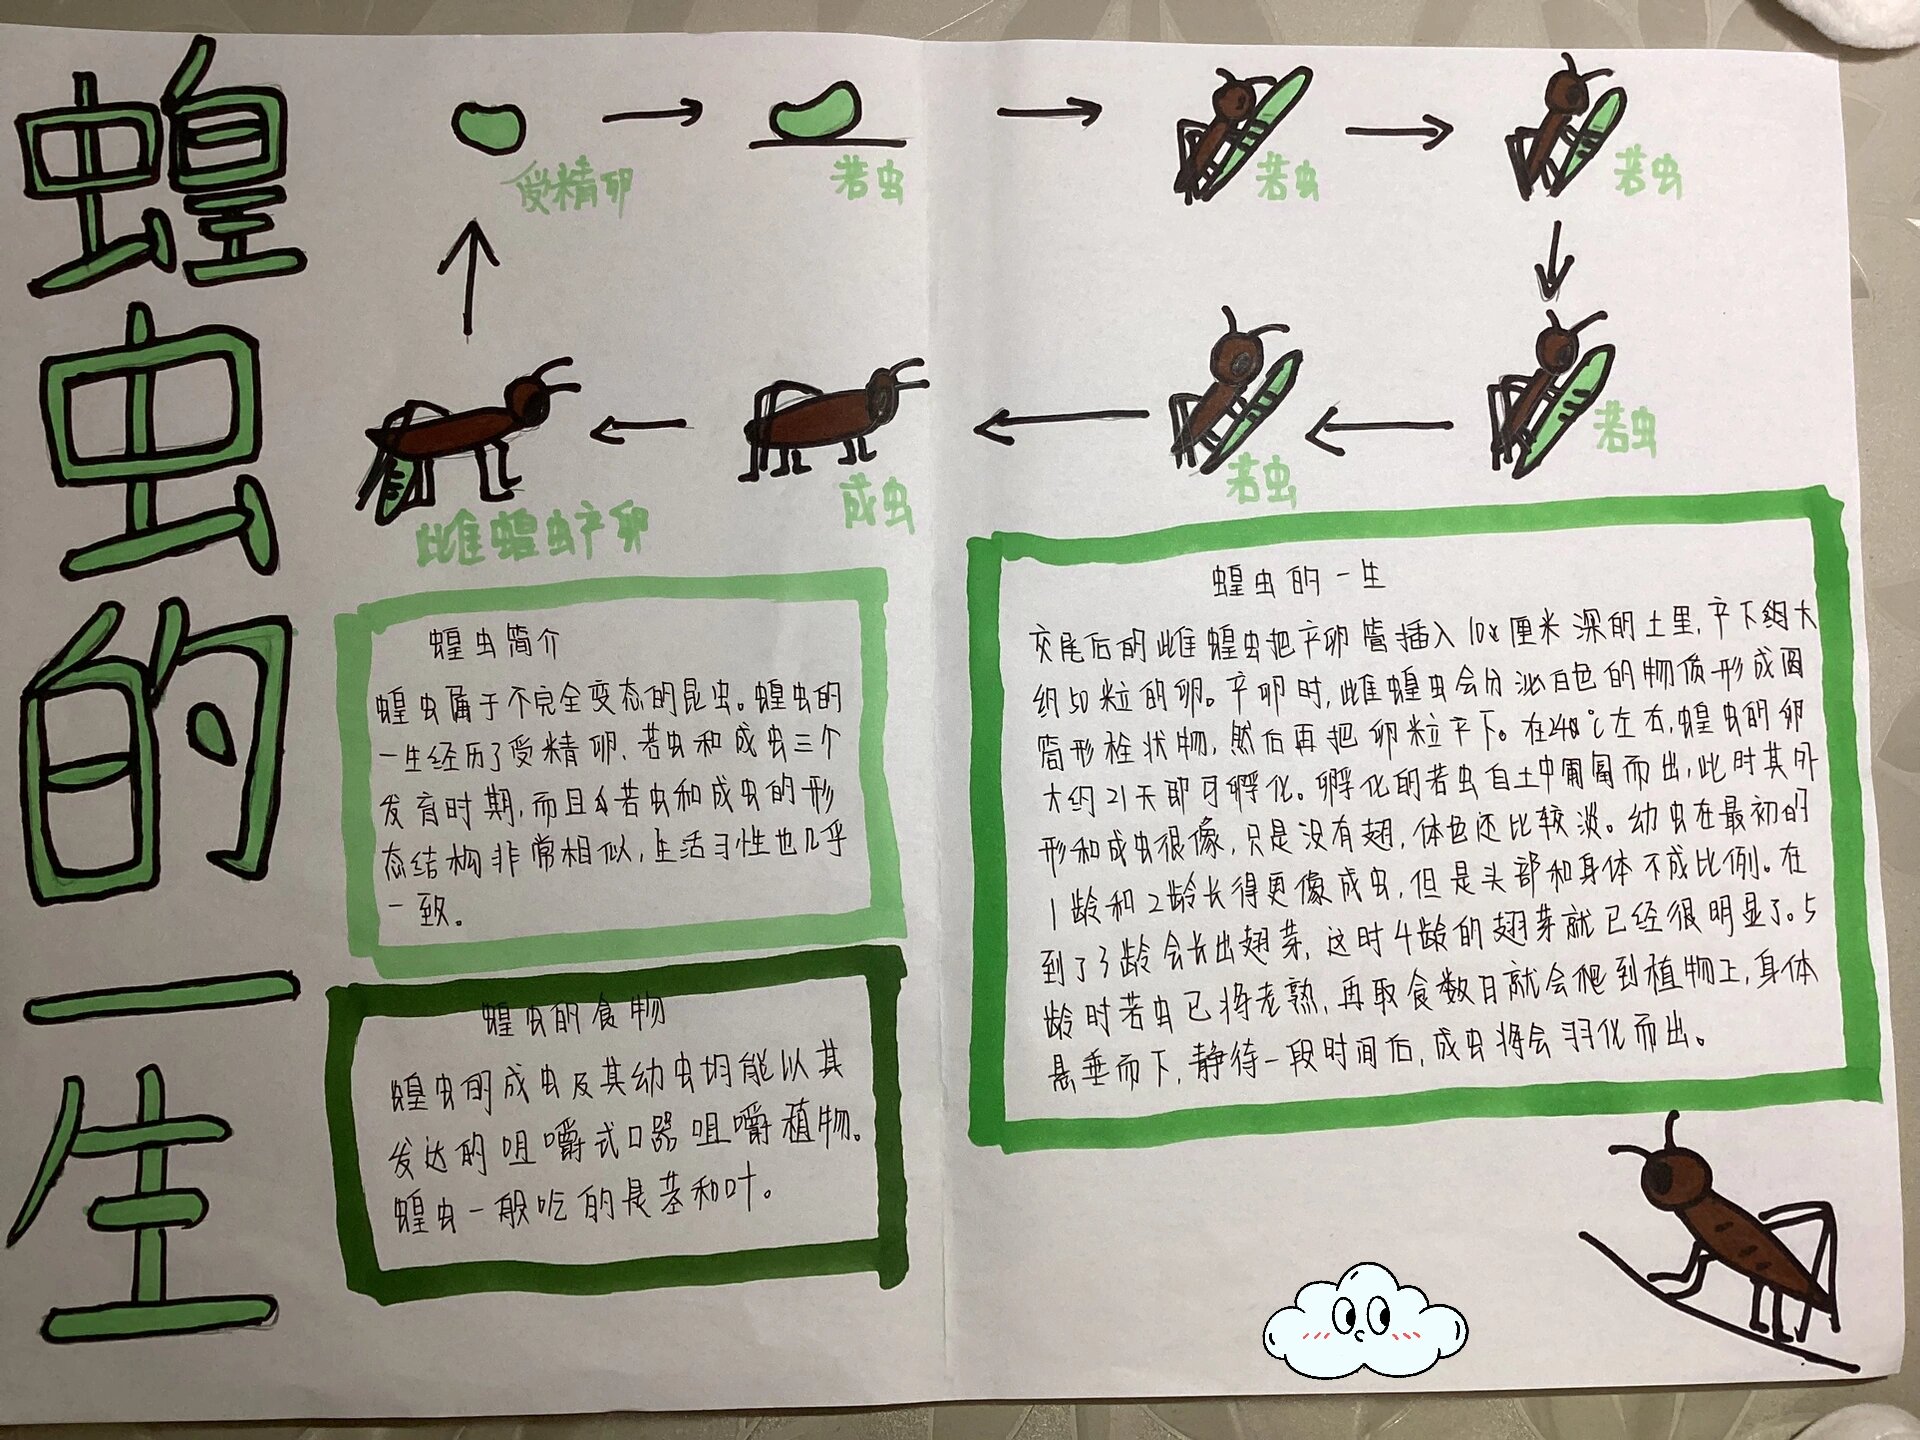 蝗虫的一生
受精卵
若虫
若虫
若虫
若虫
若虫
成虫
雌蝗虫产卵
蝗虫简介
蝗虫属于不完全变态的昆虫。蝗虫的
一生经历了受精卵、若虫和成虫三个
发育时期,而且若虫和成虫的形
态结构非常相似,生活习性也几乎
一致。
蝗虫的食物
蝗虫的成虫及其幼虫均能以其
发达的咀嚼式口器咀嚼植物。
蝗虫一般吃的是茎和叶。
蝗虫的一生
交尾后的雌蝗虫把产卵管插入10厘米深的土里,产下约大
约50粒的卵。产卵时,雌蝗虫会分泌白色的物质形成圆
筒形栓状物,然后再把卵粒产下。在24℃左右,蝗虫的卵
大约21天即可孵化。孵化的若虫自土中匍匐而出,此时其外
形和成虫很像,只是没有翅,体色还比较淡。幼虫在最初的
1龄和2龄长得更像成虫,但是头部和身体不成比例。在
到了3龄会长出翅芽,这时4龄的翅芽就已经很明显了。5
龄时若虫已将老熟,再取食数日就会爬到植物上,身体
悬垂而下,静待一段时间后,成虫将会羽化而出。